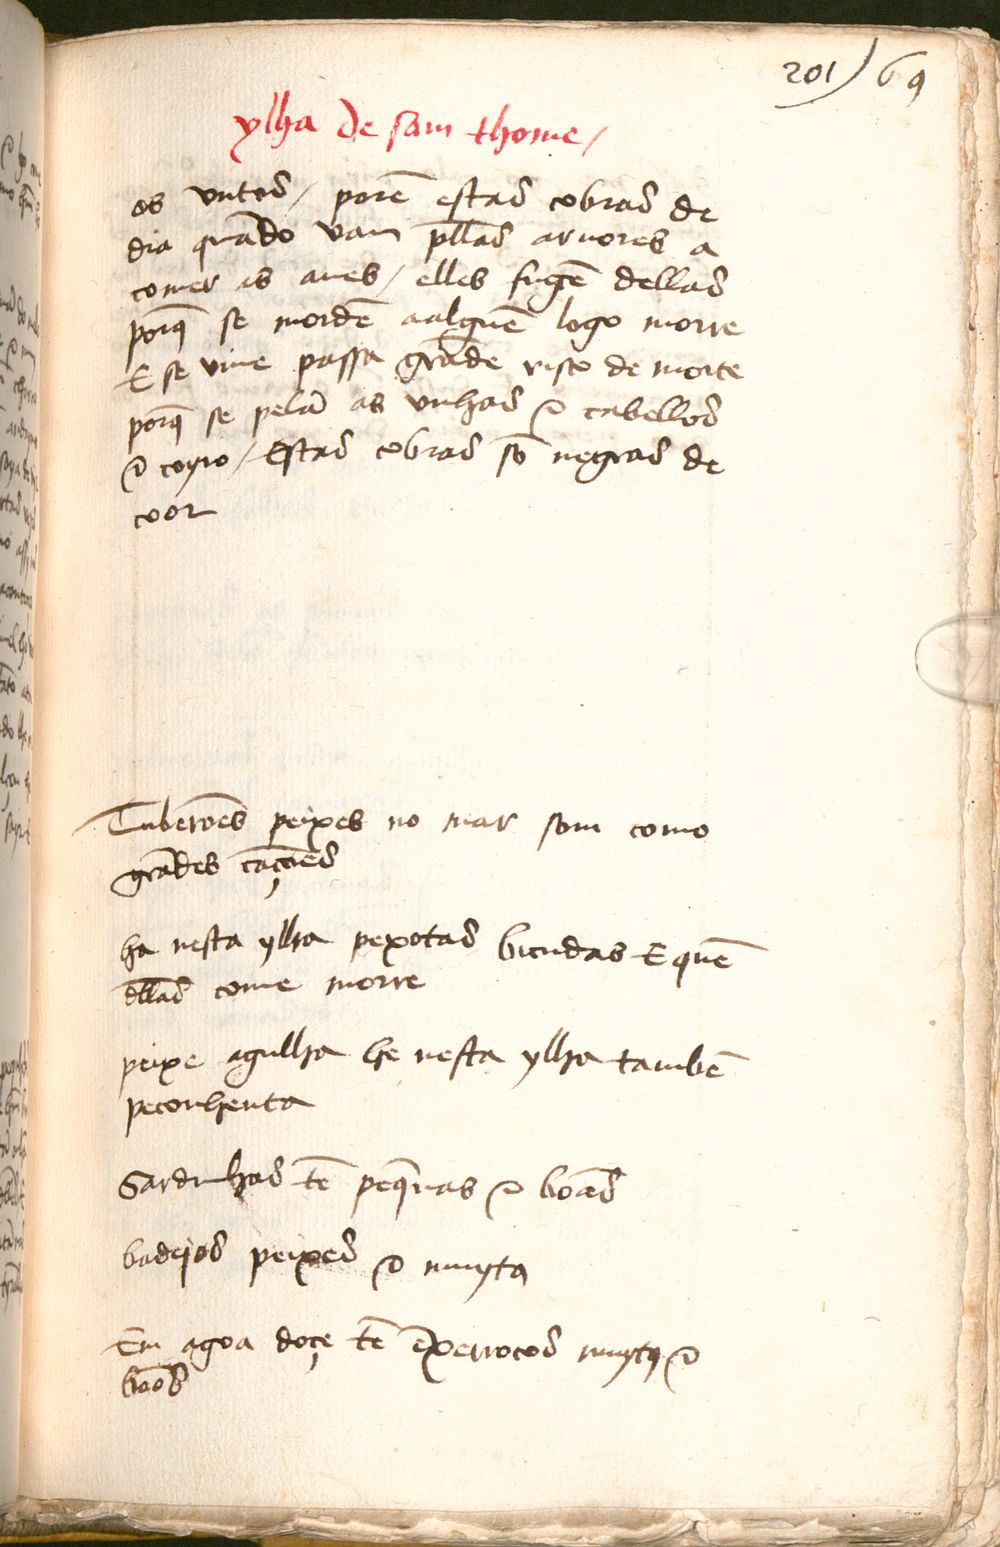 201) 69
ylha de sam thome /
os vntos / porẽ estas cobras de
dia quãdo vam pllas aruores a
comer as aues / elles fugẽ dellas
porq̃ se mordẽ aalguẽ logo morre
E se viue passa grãde risco de morte
porq̃ se pelã as vnhas & cabellos
& coyro / Estas cobras sõ negras de
coor
Tuberões peixes no mar som como
grãdes cações
ha nesta ylha pexotas bicudas E quẽ
dllas come morre
peixe agulha he nesta ylha tambẽ
peconhenta
Sardinhas tẽ peq̃nas & boas
badejos peixes & muyta
Em agoa doçe tẽ exerrocos muytos &
boõs